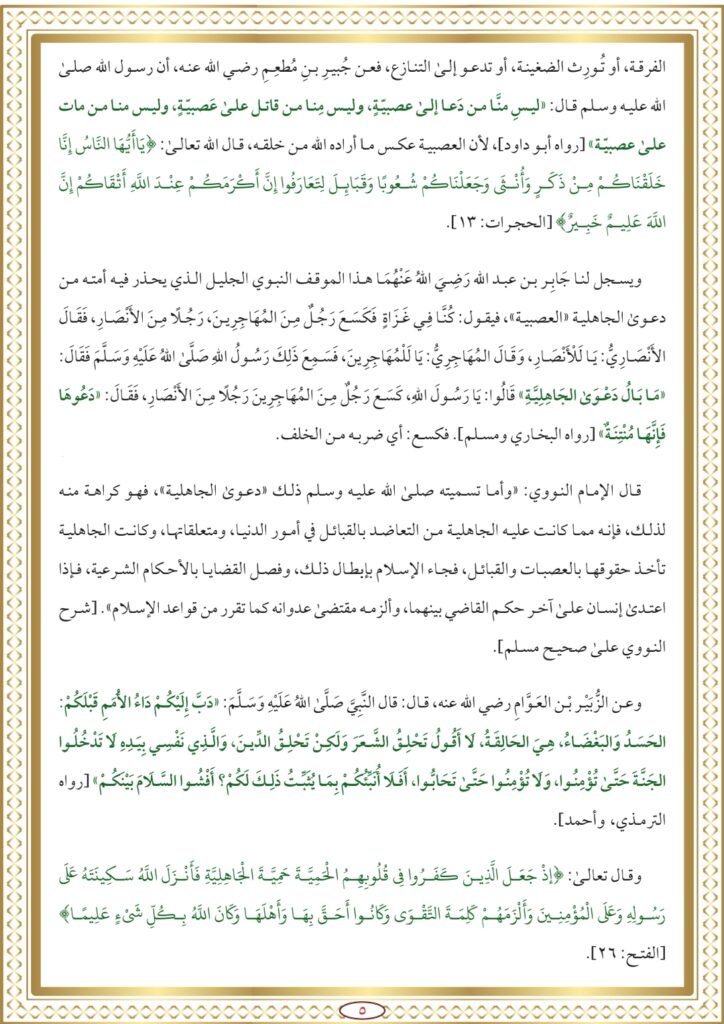 الفرقة، أو تُورِث الضغينة، أو تدعو إلىٰ التنازع، فعن جُبيرِ بنِ مُطعِمِ رضي الله عنه، أن رسول الله صلىٰ
الله عليه وسلم قال: «ليس منَّا من دَعا إلىٰ عصبيّةٍ، وليس مِنا من قاتل علىٰ عَصبيّةٍ، وليس منا من مات
علىٰ عصبيّة» [رواه أبو داود]، لأن العصبية عكس ما أراده الله من خلقه، قال الله تعالىٰ: ﴿يَاأَيُّهَا النَّاسُ إِنَّا
خَلَقْنَاكُمْ مِنْ ذَكَرٍ وَأُنْثَى وَجَعَلْنَاكُمْ شُعُوبًا وَقَبَايِلَ لِتَعَارَفُوا إِنَّ أَكْرَمَكُمْ عِنْدَ اللَّهِ أَتْقَاكُمْ إِنَّ
اللَّهَ عَلِيمٌ خَبِيرٌ﴾ [الحجرات: ١٣].
ويسجل لنا جَابِر بن عبد الله رَضِيَ اللهُ عَنْهُمَا هذا الموقف النبوي الجليل الذي يحذر فيه أمته من
دعوىٰ الجاهلية «العصبية»، فيقول: كُنَّا فِي غَزَاةٍ فَكَسَعَ رَجُلٌ مِنَ المُهَاجِرِينَ، رَجُلًا مِنَ الأَنْصَارِ، فَقَالَ
الأَنْصَارِيُّ: يَا لَلْأَنْصَارِ، وَقَالَ المُهَاجِرِيُّ: يَا لَلْمُهَاجِرِينَ، فَسَمِعَ ذَلِكَ رَسُولُ اللهِ صَلَّىٰ اللهُ عَلَيْهِ وَسَلَّمَ فَقَالَ:
«مَا بَالُ دَعْوَىٰ الجَاهِلِيَّةِ» قَالُوا: يَا رَسُولَ اللهِ، كَسَعَ رَجُلٌ مِنَ المُهَاجِرِينَ رَجُلًا مِنَ الأَنْصَارِ، فَقَالَ: «دَعُوهَا
فَإِنَّهَا مُنْتِنَةٌ» [رواه البخاري ومسلم]. فكسع: أي ضربه من الخلف.
قال الإمام النووي: «وأما تسميته صلىٰ الله عليه وسلم ذلك «دعوىٰ الجاهلية»، فهو كراهة منه
لذلك، فإنه مما كانت عليه الجاهلية من التعاضد بالقبائل في أمور الدنيا، ومتعلقاتها، وكانت الجاهلية
تأخذ حقوقها بالعصبات والقبائل، فجاء الإسلام بإبطال ذلك، وفصل القضايا بالأحكام الشرعية، فإذا
اعتدىٰ إنسان علىٰ آخر حكم القاضي بينهما، وألزمه مقتضىٰ عدوانه كما تقرر من قواعد الإسلام». [شرح
النووي علىٰ صحيح مسلم].
وعن الزُّبَيْر بْن العَوَّامِ رضي الله عنه، قال: قال النَّبِيَّ صَلَّىٰ اللهُ عَلَيْهِ وَسَلَّمَ: «دَبَّ إِلَيْكُمْ دَاءُ الأُمَمِ قَبْلَكُمْ:
الحَسَدُ وَالبَغْضَاءُ، هِيَ الحَالِقَةُ، لَا أَقُولُ تَحْلِقُ الشَّعرَ وَلَكِنْ تَحْلِقُ الدِّينَ، وَالَّذِي نَفْسِي بِيَدِهِ لَا تَدْخُلُوا
الجَنَّةَ حَتَّىٰ تُؤْمِنُوا، وَلَا تُؤْمِنُوا حَتَّىٰ تَحَابُّوا، أَفَلَا أُنَبِّئُكُمْ بِمَا يُثَبِّتُ ذَلِكَ لَكُمْ؟ أَفْشُوا السَّلَامَ بَيْنَكُمْ» [رواه
الترمذي، وأحمد].
وقال تعالىٰ: ﴿إِذْ جَعَلَ الَّذِينَ كَفَرُوا فِي قُلُوبِهِمُ الْحَمِيَّةَ حَمِيَّةَ الْجَاهِلِيَّةِ فَأَنْزَلَ اللَّهُ سَكِينَتَهُ عَلَى
رَسُولِهِ وَعَلَى الْمُؤْمِنِينَ وَأَلْزَمَهُمْ كَلِمَةَ التَّقْوَى وَكَانُوا أَحَقَّ بِهَا وَأَهْلَهَا وَكَانَ اللَّهُ بِكُلِّ شَيْءٍ عَلِيمًا﴾
[الفتح: ٢٦].
٥